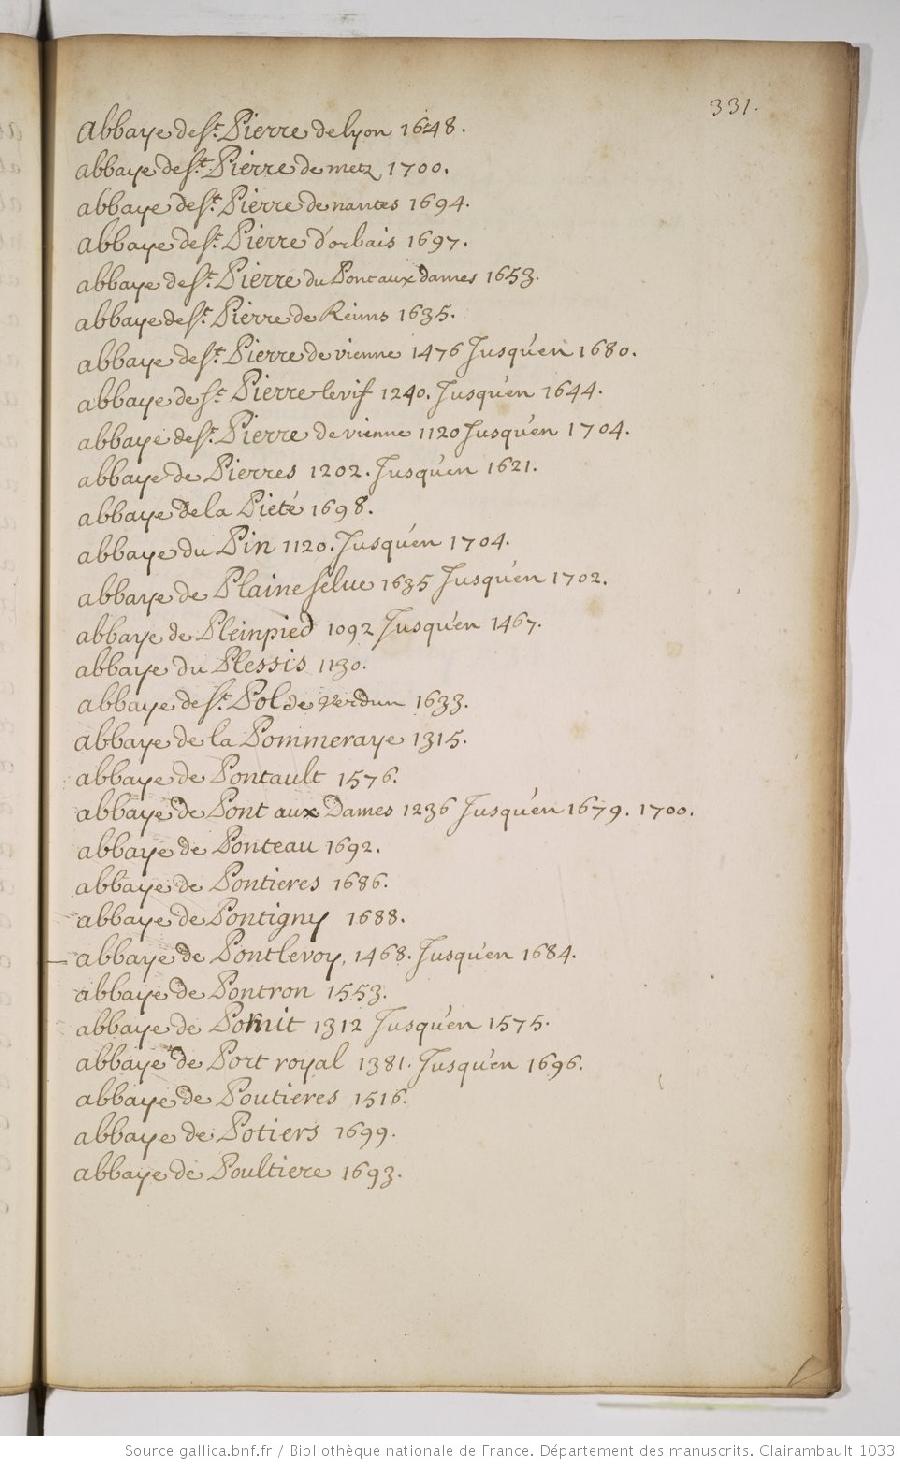 331.
abbaye de st. Pierre de lyon 1648.
abbaye de st. Pierre de metz 1700.
abbaye de st. Pierre de nantes 1694.
abbaye de st. Pierre d'orbais 1697.
abbaye de st. Pierre du Pont aux dames 1653.
abbaye de st. Pierre de Reims 1635.
abbaye de st. Pierre de vienne 1476 Jusqu'en 1680.
abbaye de st. Pierre le vif 1240. Jusqu'en 1644.
abbaye de st. Pierre de vienne 1120 Jusqu'en 1704.
abbaye de Pierres 1202. Jusqu'en 1621.
abbaye de la Pieté 1698.
abbaye du Pin 1120. Jusqu'en 1704.
abbaye de Plaineselue 1635 Jusqu'en 1702.
abbaye de Pleinpied 1092 Jusqu'en 1467.
abbaye du Plessis 1130.
abbaye de st. Pol de Verdun 1633.
abbaye de la Pommeraye 1315.
abbaye de Pontault 1576.
abbaye de Pont aux Dames 1236 Jusqu'en 1679. 1700.
abbaye de Ponteau 1692.
abbaye de Pontieres 1686.
abbaye de Pontigny 1688.
abbaye de Pontlevoy, 1468. Jusqu'en 1684.
abbaye de Pontron 1553.
abbaye de 1312 Jusqu'en 1575.
abbaye de Port royal 1381. Jusqu'en 1696.
abbaye de Poutieres 1516.
abbaye de Potiers 1699.
abbaye de Poultiere 1693.
Source gallica.bnf.fr / Bibliothèque nationale de France. Département des manuscrits. Clairambault 1033